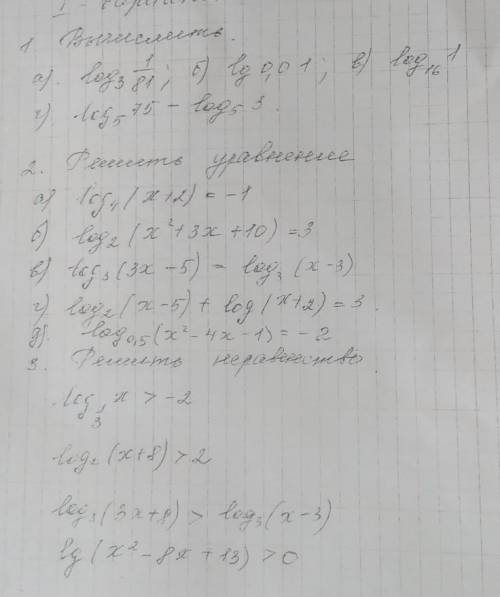 I - вариант.
1. Вычислить.
а). log₃ 1/81; б) lg 0,01; в) log₁₆ 1
г). log₅ 75 - log₅ 3.
2. Решить уравнение
а) log₄ (x+2) = -1
б) log₂ (x²+3x+10) = 3
в) log₃ (3x-5) = log₃ (x-3)
г) log₂ (x-5) + log (x+2) = 3.
д) log₀,₅ (x²-4x-1) = -2
3. Решить неравенство
log₃ x > -2
log₂ (x+8) > 2
log₃ (3x+8) > log₃ (x-3)
lg (x²-8x+13) > 0